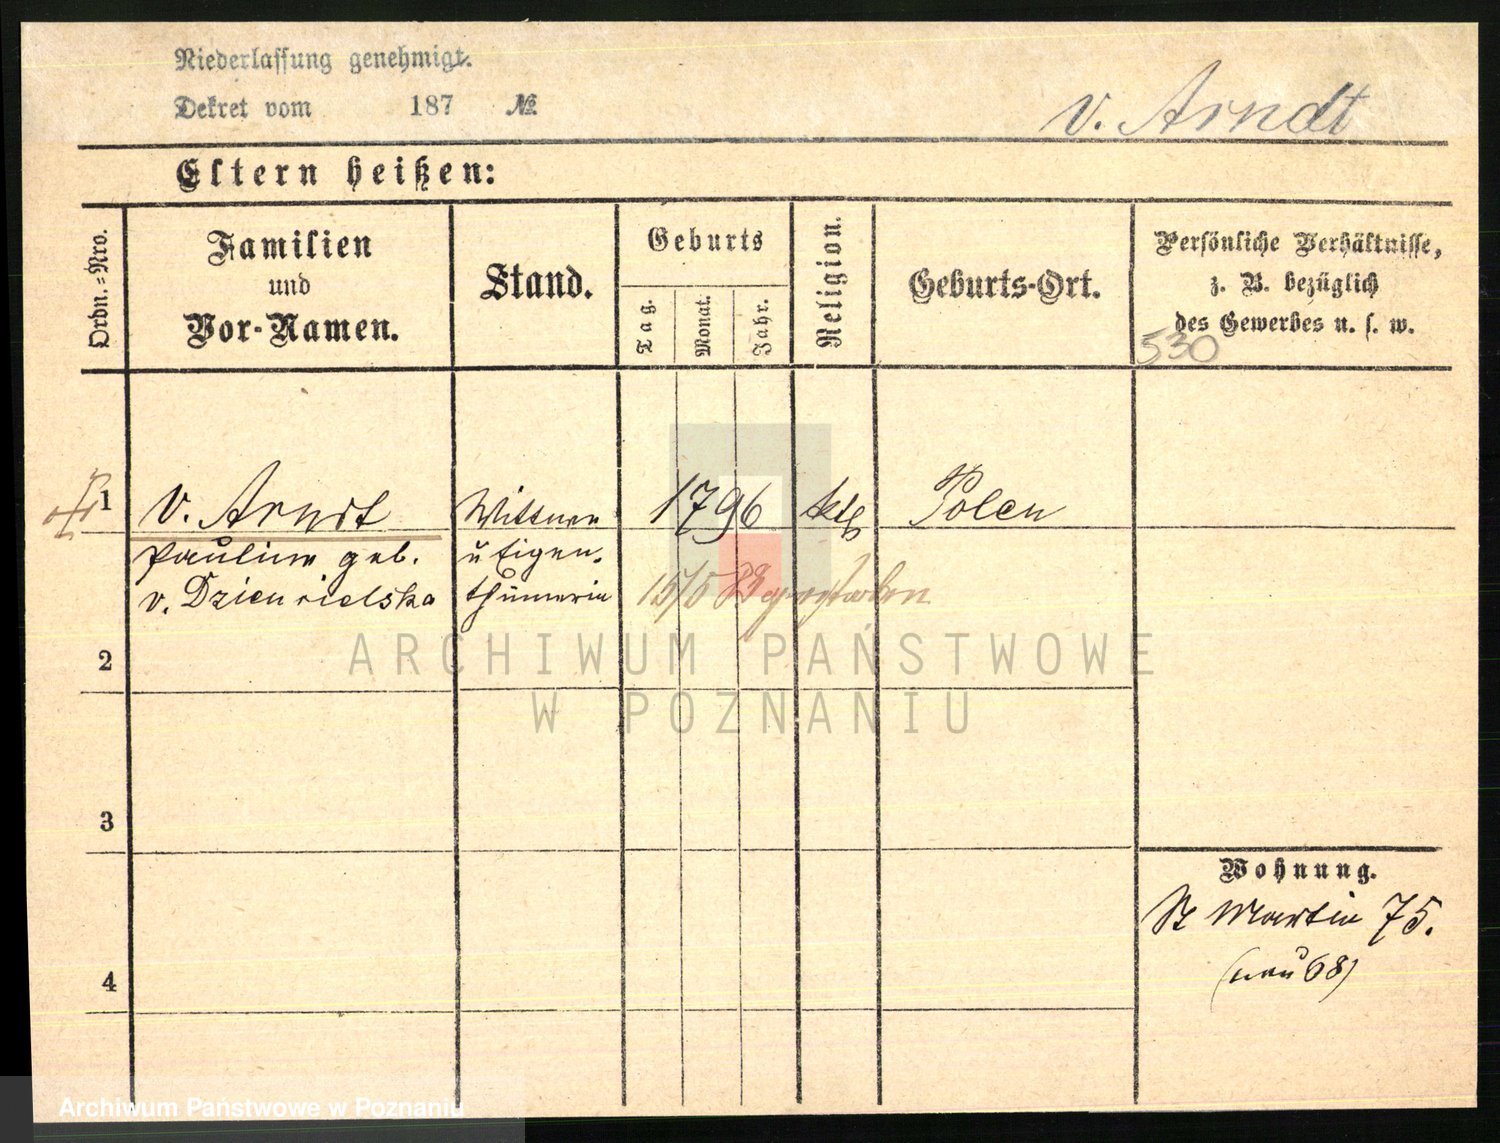 Niederlassung genehmigt.
Dekret vom 187 №
v. Arndt
Eltern heißen:
Ordn.-Nro.
Familien
und
Vor-Namen.
Stand.
Geburts
Tag.
Monat.
Jahr.
Religion.
Geburts-Ort.
Persönliche Verhältnisse,
z. B. bezüglich
des Gewerbes u. s. w.
530
1
v. Arndt
Pauline geb.
v. Dziennielska
Wittwe
u Eigen-
thümerin
1796
kth
Polen
15/5 83 gestorben
2
3
4
Wohnung.
St Martin 75.
(neu 68)
ARCHIWUM PAŃSTWOWE
W POZNANIU
Archiwum Państwowe w Poznaniu